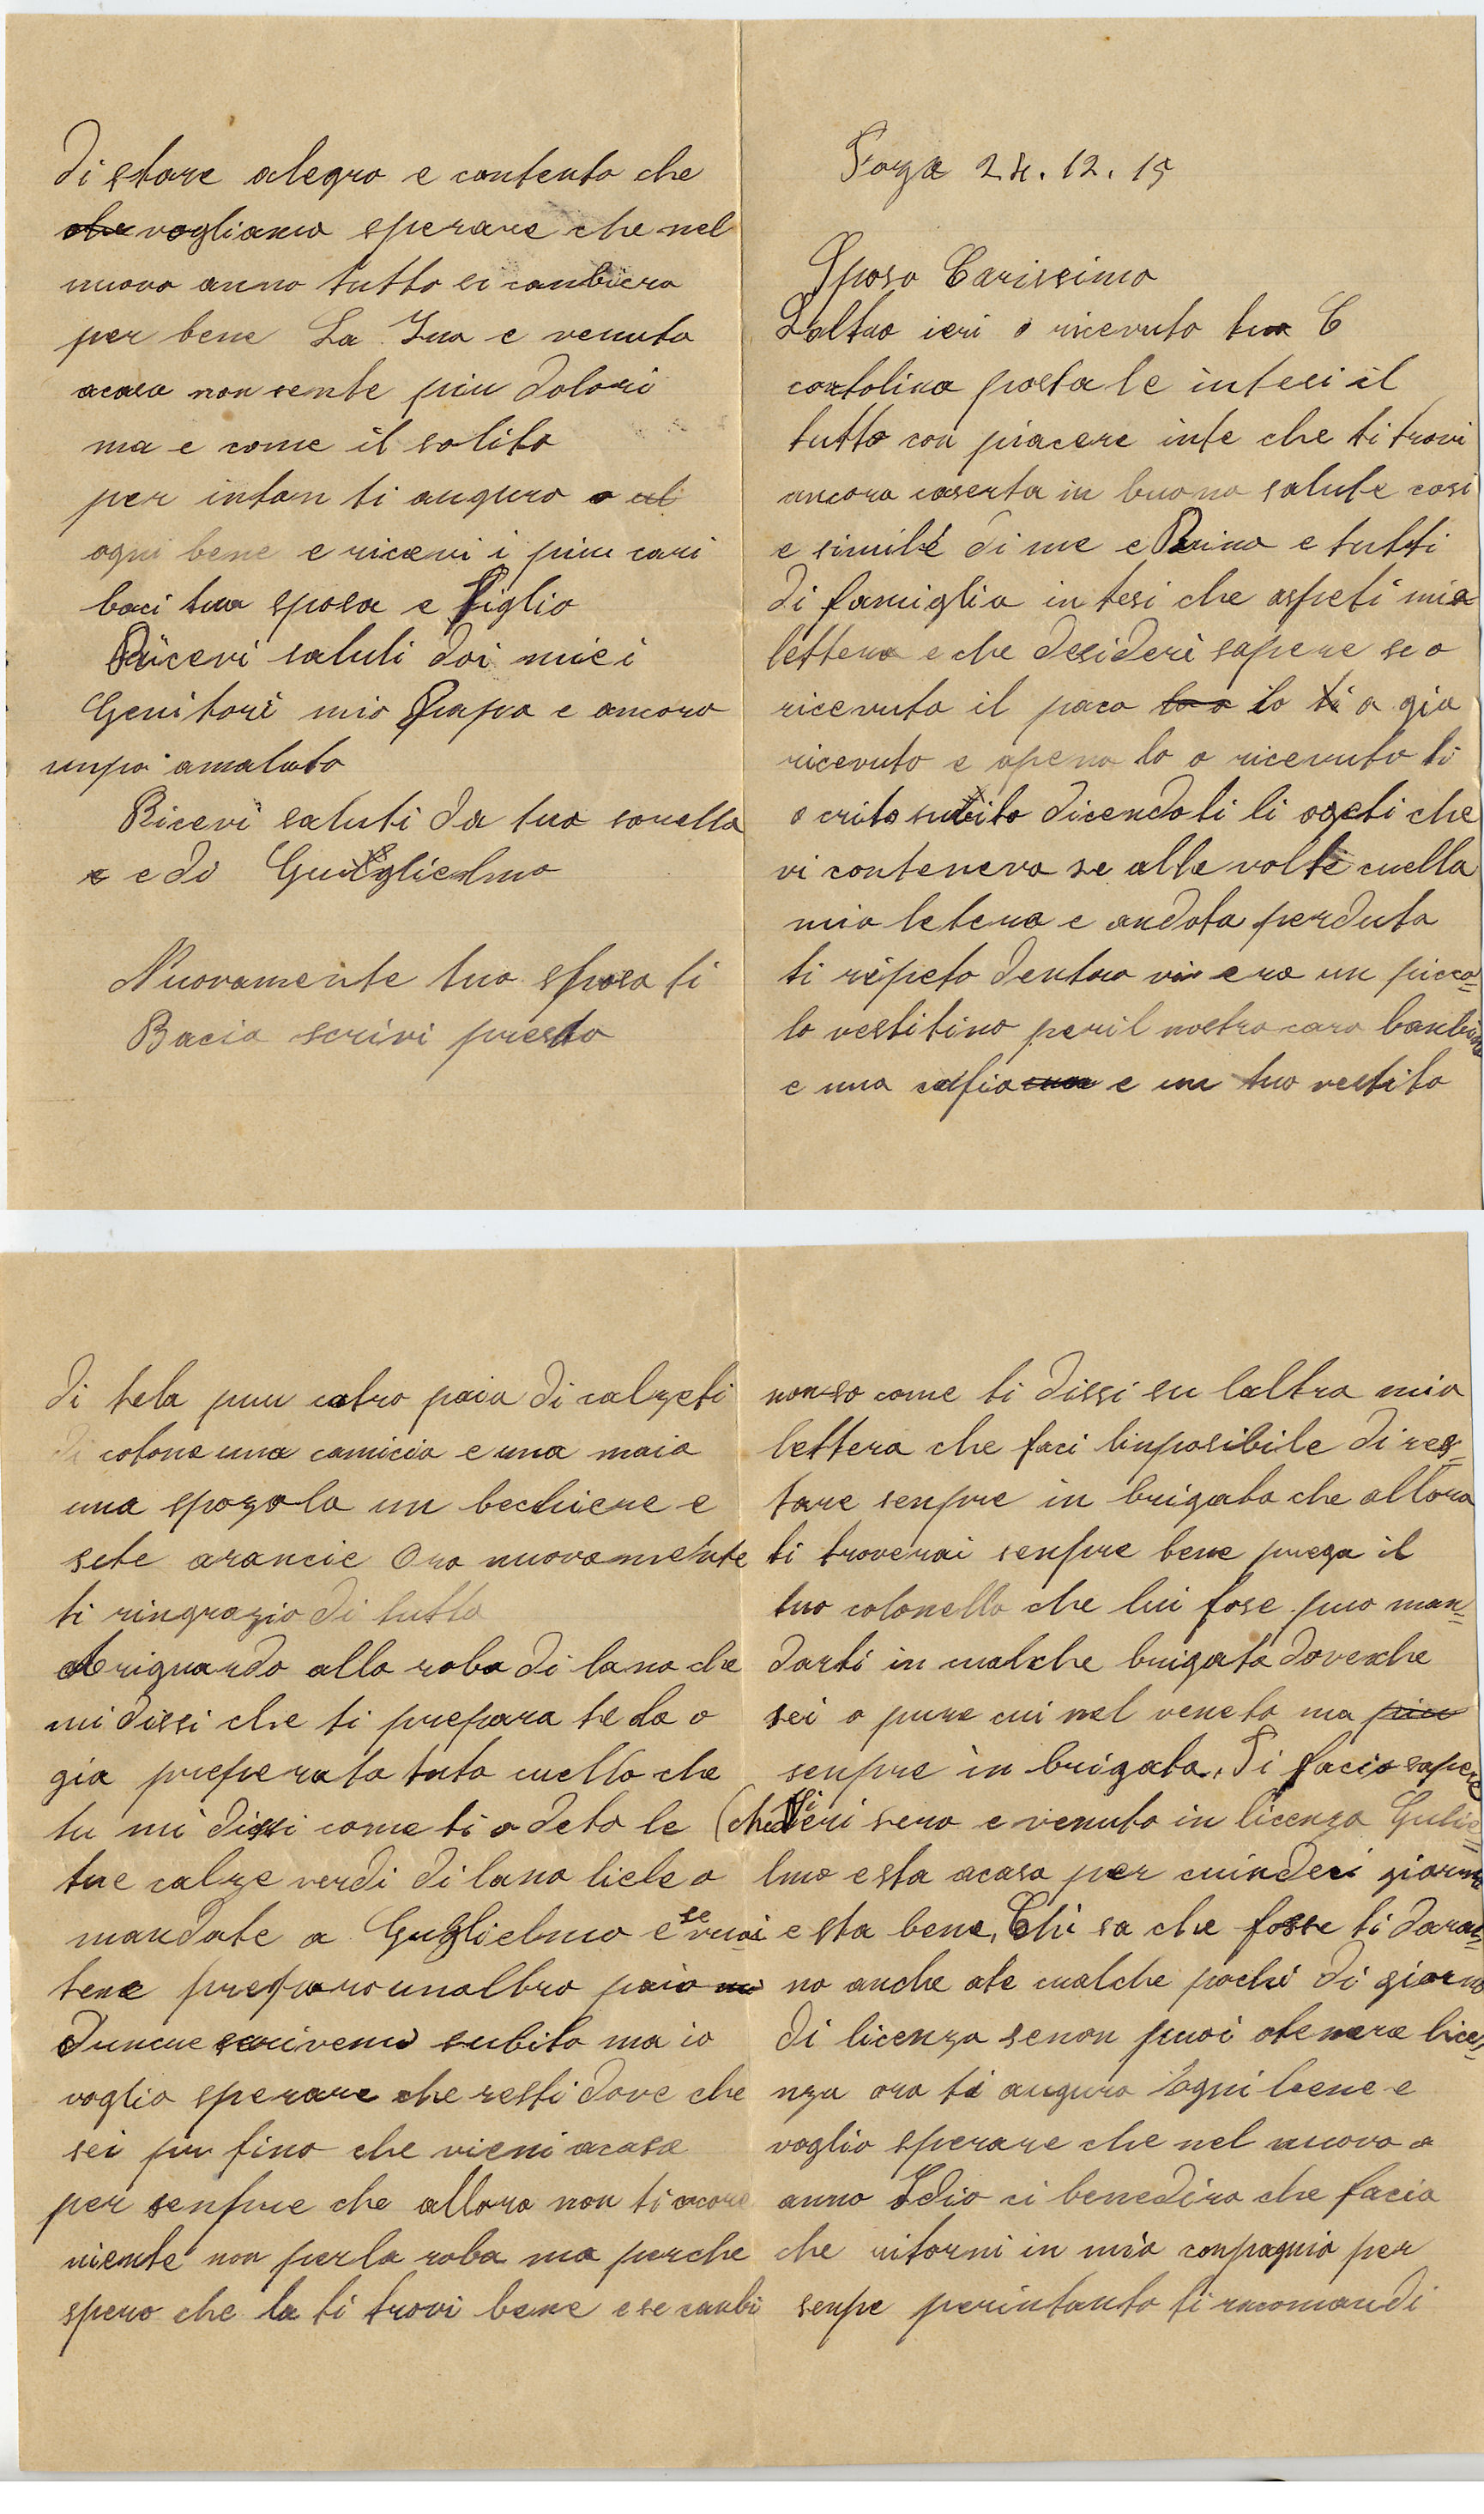 Forze 24.12.15
Sposo Carissimo
Laltro ieri o ricevuto tua C
cartolina postale intesi il
tutto con piacere inte che ti trovi
ancora caserta in buona salute cosi
e simile di me e Rino e tutti
di famiglia intesi che aspeti mia
lettera e che desideri sapere se o
ricevuto il paco lo o lo ti o gia
ricevuto e apena lo o ricevuto ti
o crito subito dicendoti li ogeti che
vi conteneva se alle volte cuella
mia letera e andata perduta
ti ripeto dentro vi era un picco=
lo vestitino per il nostro caro banbino
e una cufia e un tuo vestito
di tela piu catro paia di calzeti
di cotone una camicia e una maia
una spazola un bechiere e
sete arancie Ora nuovamente
ti ringrazio di tutto
Ariguardo alla roba di lana che
mi dissi che ti prepara te la o
gia preperata tuto cuello che
tu mi dissi come ti o deto le
tue calze verdi di lana liele o
mandate a Guglielmo e se vuoi
tene preparo unaltro paio
duncue scrivemi subito ma io
voglio sperare che resti dove che
sei fin fino che vieni acasa
per senpre che allora non ti ocore
niente non perla roba ma perche
spero che la ti trovi bene e se canbi
non so come ti dissi su laltra mia
lettera che faci linposibile di res=
tare senpre in brigata che allora
ti troverai senpre bene prega il
tuo colonello che lui fose puo man=
darti in cualche brigata dove che
sei o pure cui nel veneto ma piu
senpre in brigata. Ti facio sapere
(che ieri sera e venuto in licenza Gulie=
lmo e sta acasa per cuindeci giorni
e sta bene, Chi sa che fosse ti daran=
no anche ate cualche pochi di giorni
di licenza senon puoi otenere lice=
nza ora ti auguro ogni bene e
voglio sperare che nel nuovo a
anno Idio ci benedira che facia
che ritorni in mia conpagnia per
senpe perintanto ti racomandi
di stare alegro e contento che
che vogliamo sperare che nel
nuovo anno tutto si canbiera
per bene La Ina e venuta
acasa non sente piu dolori
ma e come il solito
per intan ti auguro o al
ogni bene e ricevi i piu cari
baci tua sposa e figlio
Ricevi saluti dai miei
Genitori mio Papa e ancora
unpo amalato
Ricevi saluti da tua sorella
e e di Guiglielmo
Nuovamente tua sposa ti
Bacia scrivi presto